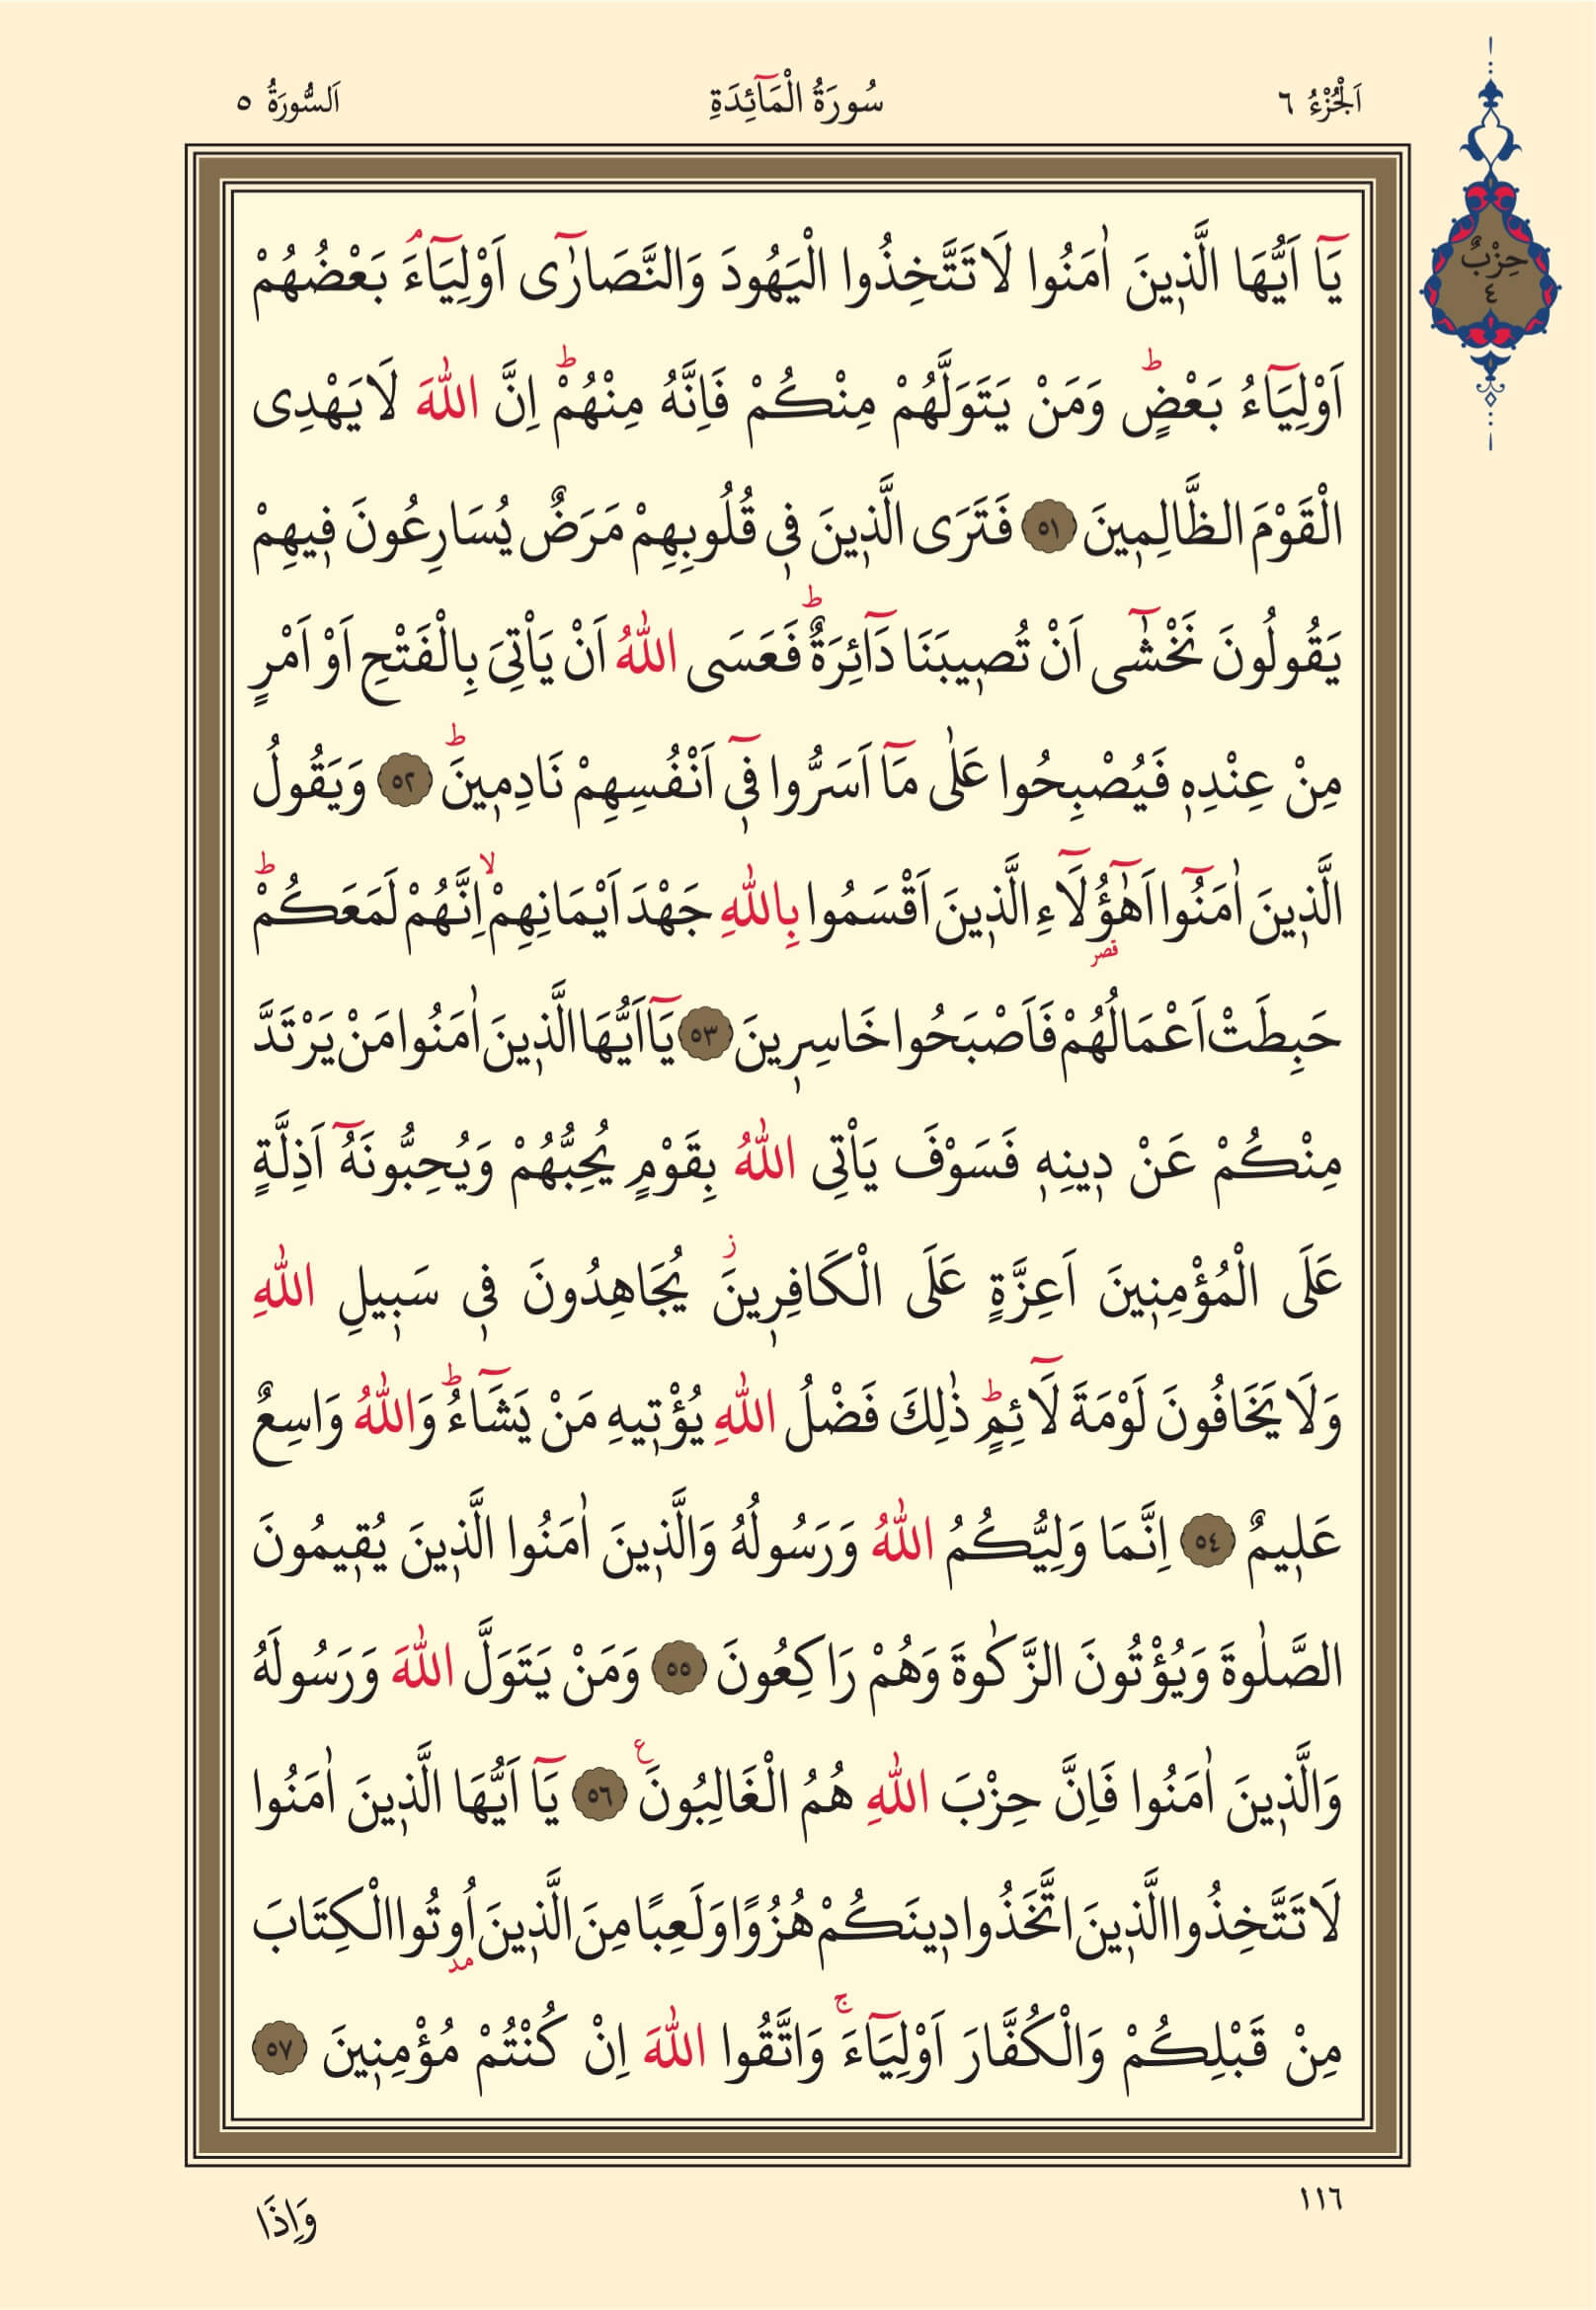 اَلْجُزْءُ ٦
سُورَةُ الْمَٓائِدَةِ
اَلسُّورَةُ ٥
حِزْبٌ
٤
يَٓا اَيُّهَا الَّذ۪ينَ اٰمَنُوا لَا تَتَّخِذُوا الْيَهُودَ وَالنَّصَارٰٓى اَوْلِيَٓاءَۢ بَعْضُهُمْ
اَوْلِيَٓاءُ بَعْضٍۜ وَمَنْ يَتَوَلَّهُمْ مِنْكُمْ فَاِنَّهُ مِنْهُمْۜ اِنَّ اللّٰهَ لَا يَهْدِى
الْقَوْمَ الظَّالِم۪ينَ ٥١ فَتَرَى الَّذ۪ينَ ف۪ى قُلُوبِهِمْ مَرَضٌ يُسَارِعُونَ ف۪يهِمْ
يَقُولُونَ نَخْشٰٓى اَنْ تُص۪يبَنَا دَٓائِرَةٌۜ فَعَسَى اللّٰهُ اَنْ يَاْتِىَ بِالْفَتْحِ اَوْ اَمْرٍ
مِنْ عِنْدِه۪ فَيُصْبِحُوا عَلٰى مَٓا اَسَرُّوا ف۪ٓى اَنْفُسِهِمْ نَادِم۪ينَۜ ٥٢ وَيَقُولُ
الَّذ۪ينَ اٰمَنُٓوا اَهٰٓؤُ۬لَٓاءِ الَّذ۪ينَ اَقْسَمُوا بِاللّٰهِ جَهْدَ اَيْمَانِهِمْۙ اِنَّهُمْ لَمَعَكُمْۜ
قصر
حَبِطَتْ اَعْمَالُهُمْ فَاَصْبَحُوا خَاسِر۪ينَ ٥٣ يَٓا اَيُّهَا الَّذ۪ينَ اٰمَنُوا مَنْ يَرْتَدَّ
مِنْكُمْ عَنْ د۪ينِه۪ فَسَوْفَ يَاْتِى اللّٰهُ بِقَوْمٍ يُحِبُّهُمْ وَيُحِبُّونَهُٓ اَذِلَّةٍ
عَلَى الْمُؤْمِن۪ينَ اَعِزَّةٍ عَلَى الْكَافِر۪ينَۘ يُجَاهِدُونَ ف۪ى سَب۪يلِ اللّٰهِ
وَلَا يَخَافُونَ لَوْمَةَ لَٓائِمٍۜ ذٰلِكَ فَضْلُ اللّٰهِ يُؤْت۪يهِ مَنْ يَشَٓاءُۜ وَاللّٰهُ وَاسِعٌ
عَل۪يمٌ ٥٤ اِنَّمَا وَلِيُّكُمُ اللّٰهُ وَرَسُولُهُ وَالَّذ۪ينَ اٰمَنُوا الَّذ۪ينَ يُق۪يمُونَ
الصَّلٰوةَ وَيُؤْتُونَ الزَّكٰوةَ وَهُمْ رَاكِعُونَ ٥٥ وَمَنْ يَتَوَلَّ اللّٰهَ وَرَسُولَهُ
وَالَّذ۪ينَ اٰمَنُوا فَاِنَّ حِزْبَ اللّٰهِ هُمُ الْغَالِبُونَ ع ٥٦ يَٓا اَيُّهَا الَّذ۪ينَ اٰمَنُوا
لَا تَتَّخِذُوا الَّذ۪ينَ اتَّخَذُوا د۪ينَكُمْ هُزُوًا وَلَعِبًا مِنَ الَّذ۪ينَ اُو۫تُوا الْكِتَابَ
مد
مِنْ قَبْلِكُمْ وَالْكُفَّارَ اَوْلِيَٓاءَۚ وَاتَّقُوا اللّٰهَ اِنْ كُنْتُمْ مُؤْمِن۪ينَ ٥٧
١١٦
وَاِذَا